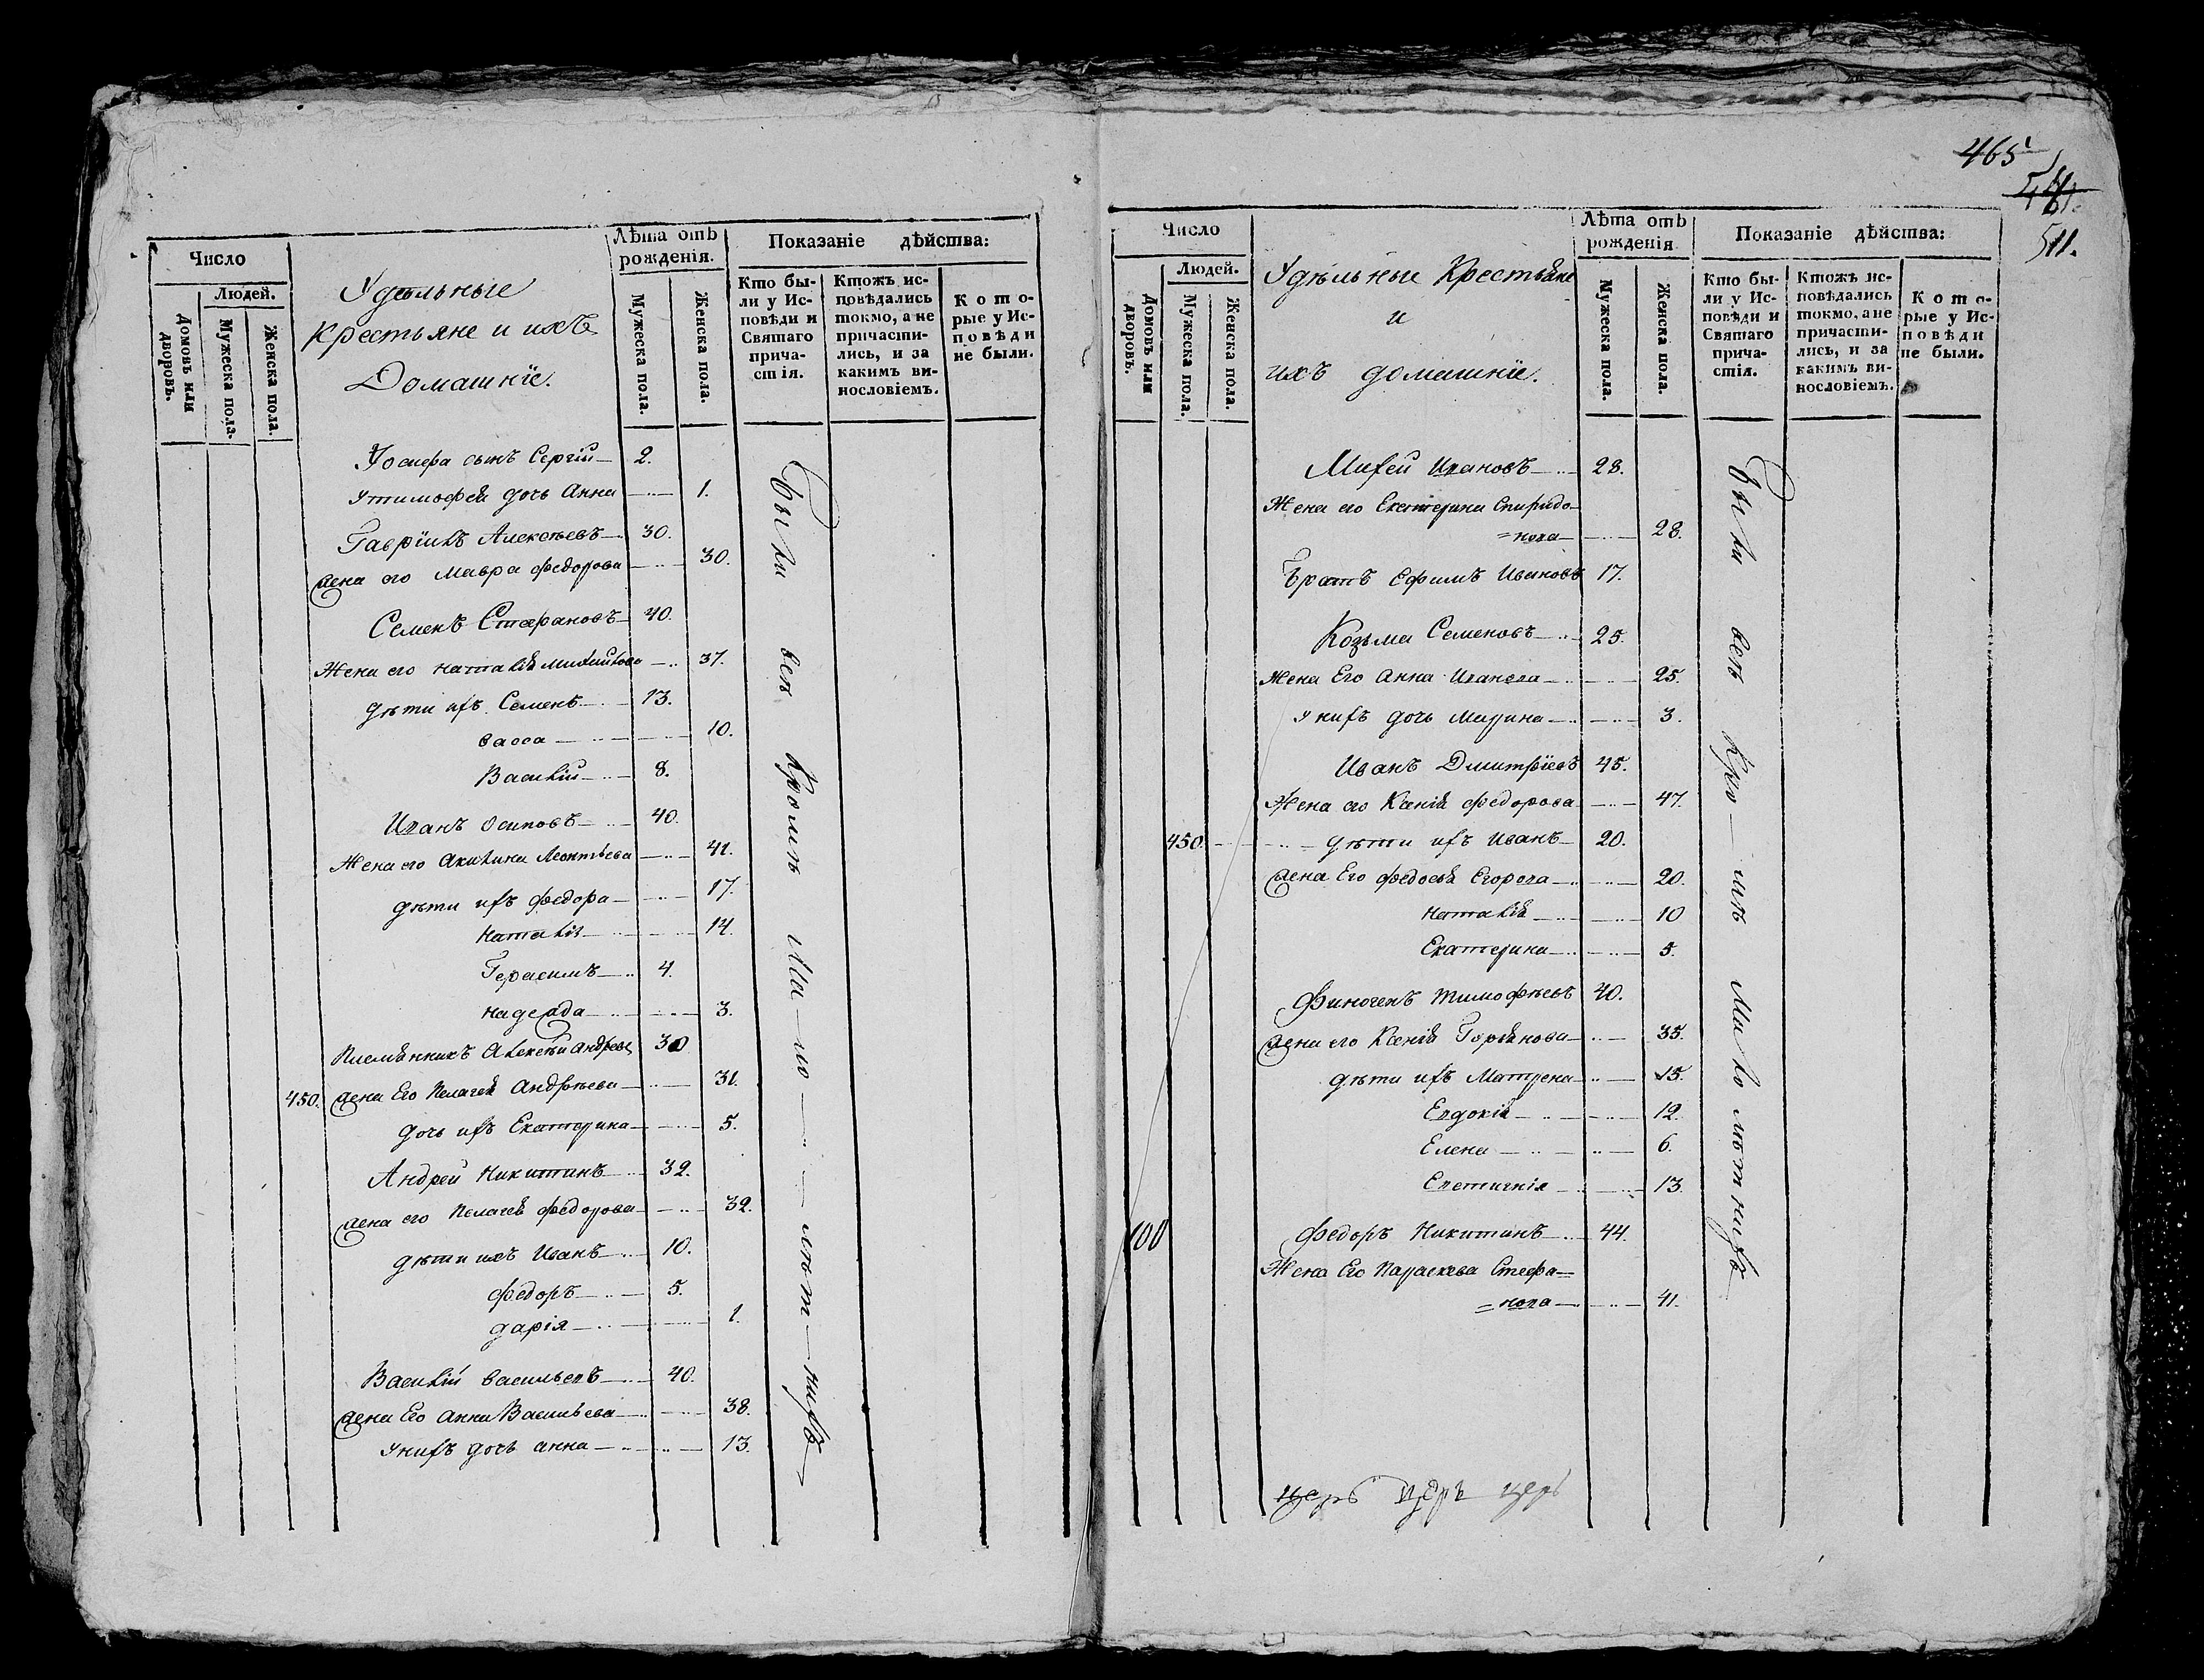 465
541.
511.
Число
Людей.
Домовъ или дворовъ.
Мужеска пола.
Женска пола.
Удѣльные
Крестьяне и ихъ
Домашніе.
Лѣта отъ рожденія.
Мужеска пола.
Женска пола.
Показаніе дѣйства:
Кто бы-
ли у Ис-
повѣди и
Святаго
прича-
стія.
Ктожъ ис-
повѣдались
токмо, а не
причасти-
лись, и за
какимъ ви-
нословіемъ.
Кото-
рые у Ис-
повѣди
не были.
Уосифа сынъ Сергій 2.
Утимофея дочь Анна 1.
Гавріилъ Алексѣевъ 30.
жена его Мавра федорова 30.
Семенъ Стефановъ 40.
Жена его наталія михаилова 37.
дѣти ихъ Семенъ 13.
васса 10.
Василій 8.
Иванъ осиповъ 40.
Жена его Акилина Леонтьева 41.
дѣти ихъ федора 17.
наталія 14.
Герасимъ 4.
надежда 3.
Племянникъ Алексѣй андреев 30
450. жена Его Пелагея Андрѣева 31.
дочь ихъ Екатерина 5.
Андрей Никитинъ 32.
жена его Пелагея федорова 32.
дѣти ихъ Иванъ 10.
федоръ 5.
дарія 1.
Василій васильевъ 40.
жена Его Анна Васильева 38.
унихъ дочь анна 13.
Были всѣ кромѣ мало-лѣт-нихъ
Число
Людей.
Домовъ или дворовъ.
Мужеска пола.
Женска пола.
Удѣльные Крестьяне
и
ихъ домашніе.
Лѣта отъ рожденія
Мужеска пола.
Женска пола.
Показаніе дѣйства:
Кто бы-
ли у Ис-
повѣди и
Святаго
прича-
стія.
Ктожъ ис-
повѣдались
токмо, а не
причасти-
лись, и за
какимъ ви-
нословіемъ.
Кото-
рые у Ис-
повѣди
не были.
Михей Ивановъ 28.
Жена его Екатерина Спиридо-
=нова 28.
Братъ Ефимъ Ивановъ 17.
Козьма Семеновъ 25.
Жена Его Анна Иванова 25.
унихъ дочь Марина 3.
Иванъ Димитріевъ 45.
Жена его Ксенія федорова 47.
450. дѣти ихъ Иванъ 20.
жена Его федосья Егорова 20.
наталія 10
Екатерина 5.
Финогенъ тимофѣевъ 40.
жена его Ксенія Горянова 35.
дѣти ихъ Матрена 15.
Евдокія 12.
Елена 6.
Епетимія 13.
100 федоръ Никитинъ 44.
Жена Его Параскева Стефа=
=нова 41.
Были всѣ кро-мѣ малолѣтнихъ
церь церь церь